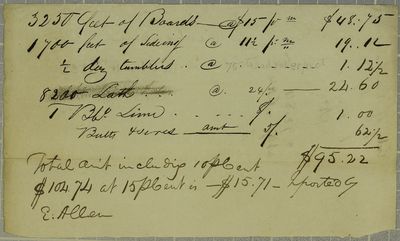 3250 feet of Boards — @ $15 pr m $48.75
1700 feet of Sideing @ 11½ pr m 19.12
½ doz tumblers . @ 1.12½
8200 Lath @. 24/ — 24.60
1 Bbl Lime . . . . 8/. 1.00
Butts & screws amt 5/. 62½
$95.22
Total amt includig 10 p Cent
$104.74 at 15 p Cent is — $15.71 —
E. Allen